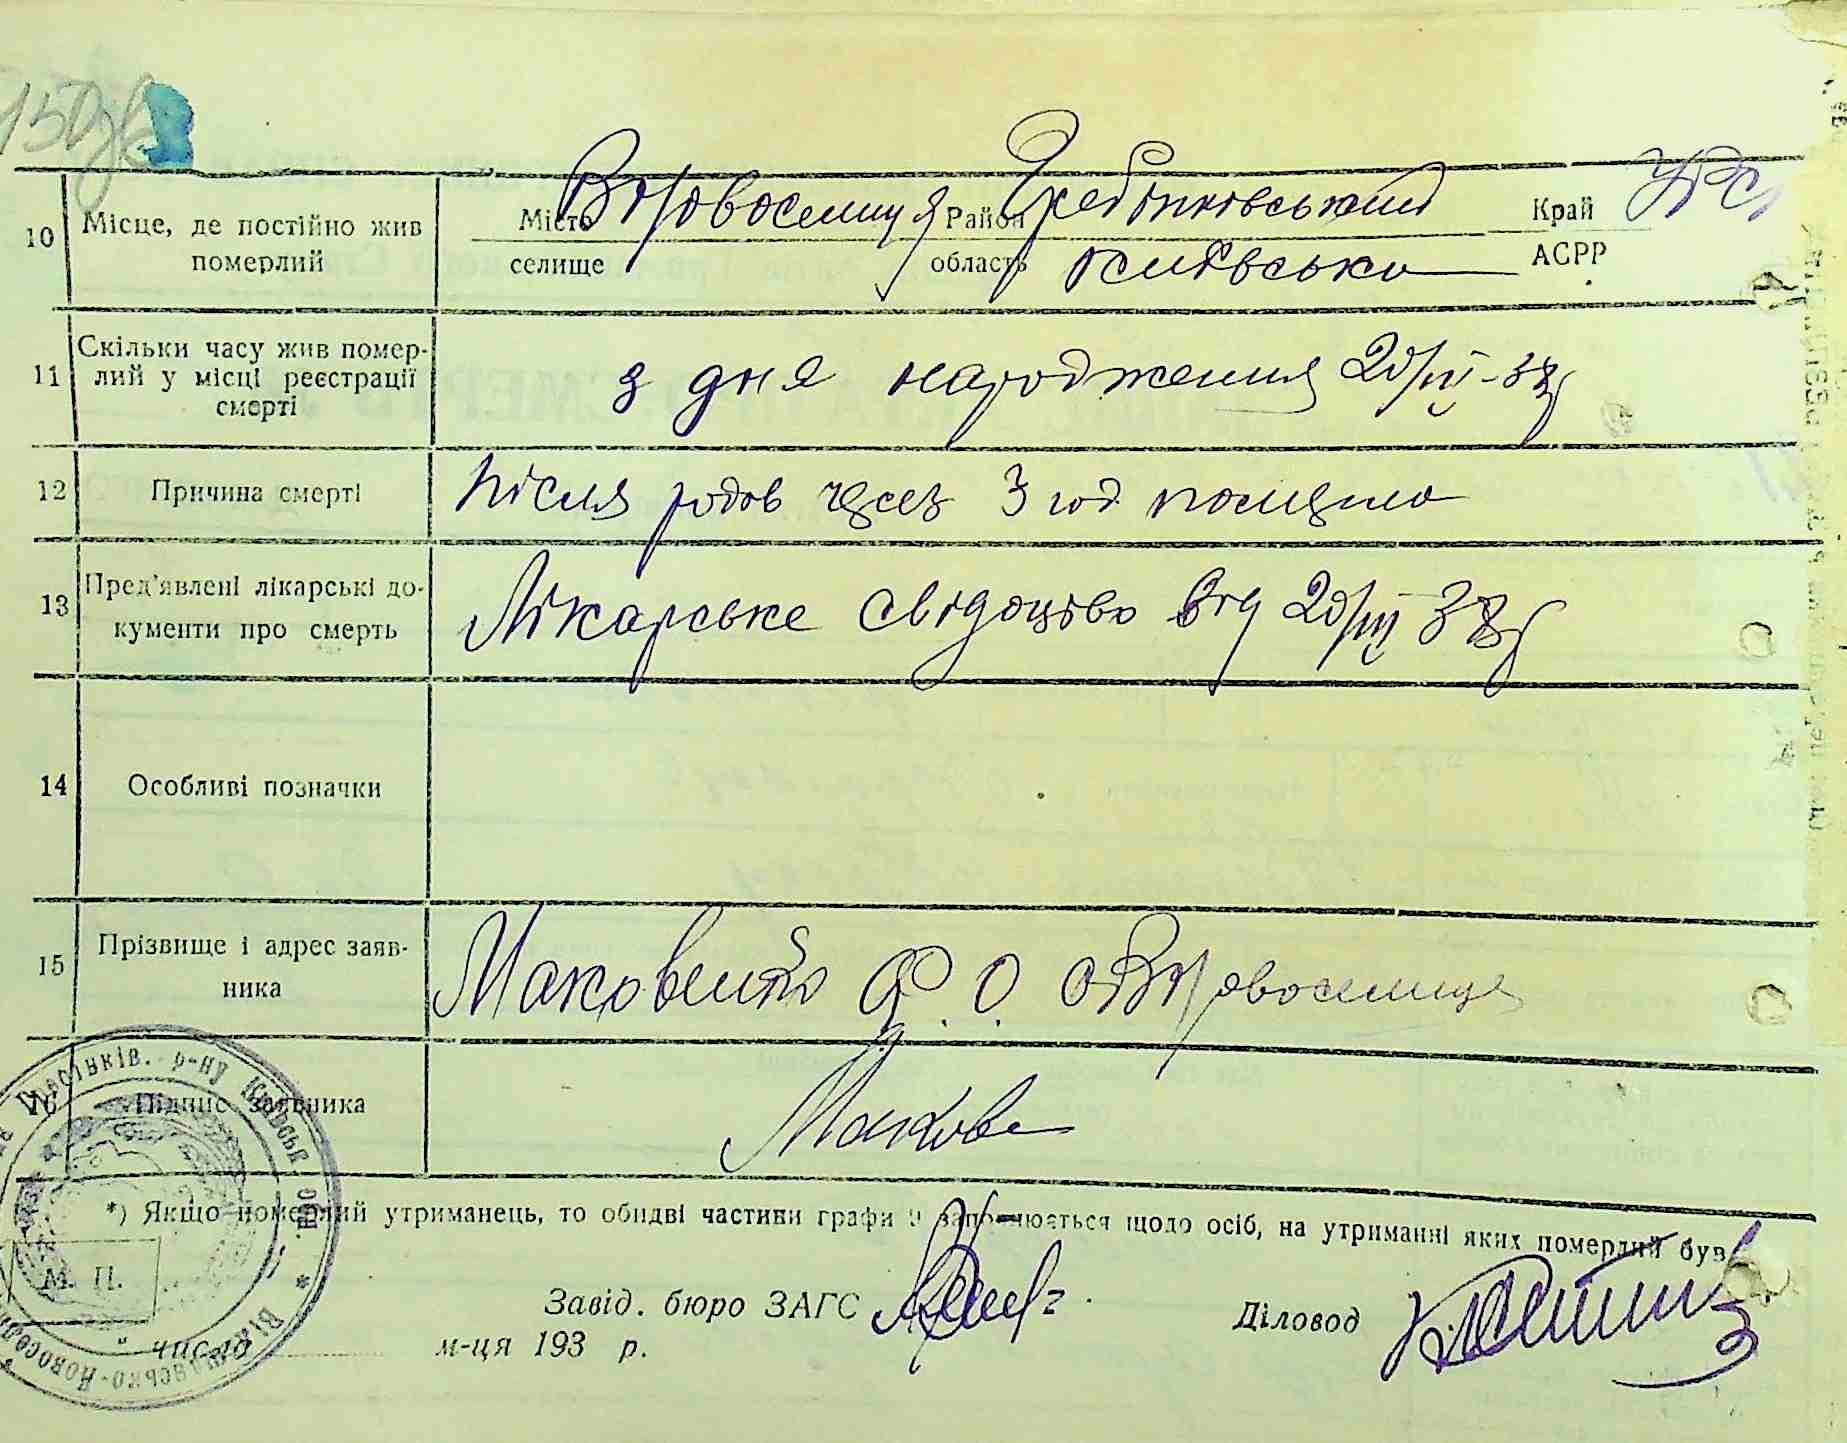 150зв
10 Місце, де постійно жив померлий Місто селище В. Новоселиця Район Гребінківський область Київська Край АСРР УРСР
11 Скільки часу жив помер-
лий у місці реєстрації
смерті
з дня народження 20/III-38р
12 Причина смерті Після родов через 3 год померло
13 Пред'явлені лікарські до-
кументи про смерть
Лікарське свідоцтво від 20/III 38р
14 Особливі позначки
15 Прізвище і адрес заяв-
ника
Маковенко Ф. О.
16 Підпис заявника Макове
*) Якщо померлий утриманець, то обидві частини графи 9 заповнюється щодо осіб, на утриманні яких померлий був
М. П.
Завід. бюро ЗАГС
Діловод
" число м-ця 193 р.
Гребінків. р-ну Київськ. об.